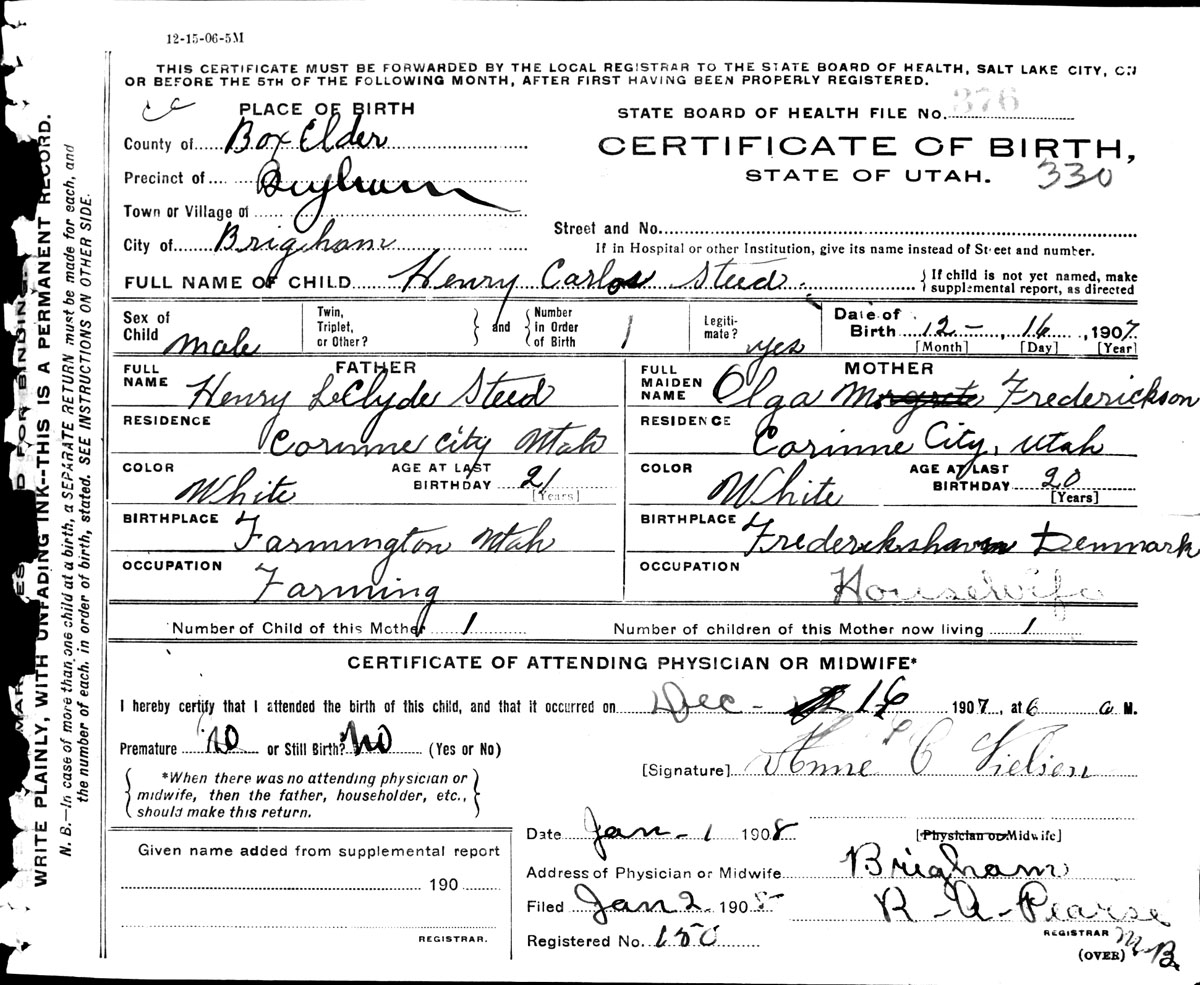 12-15-06-5M
THIS CERTIFICATE MUST BE FORWARDED BY THE LOCAL REGISTRAR TO THE STATE BOARD OF HEALTH, SALT LAKE CITY, ON
OR BEFORE THE 5TH OF THE FOLLOWING MONTH, AFTER FIRST HAVING BEEN PROPERLY REGISTERED.
PLACE OF BIRTH
County of Box Elder
Precinct of Brigham
Town or Village of
City of Brigham
STATE BOARD OF HEALTH FILE No. 376
CERTIFICATE OF BIRTH,
STATE OF UTAH. 330
Street and No.
If in Hospital or other Institution, give its name instead of Street and number.
FULL NAME OF CHILD Henry Carlos Steed
If child is not yet named, make
supplemental report, as directed
Sex of Child male
Twin, Triplet, or Other?
and
Number in Order of Birth 1
Legiti-mate? yes
Date of Birth 12 - 16, 1907
[Month] [Day] [Year]
FATHER
FULL NAME Henry LeClyde Steed
RESIDENCE Corinne City Utah
COLOR White
AGE AT LAST BIRTHDAY 21
[Years]
BIRTHPLACE Farmington Utah
OCCUPATION Farming
MOTHER
FULL MAIDEN NAME Olga Margrete Frederickson
RESIDENCE Corinne City, Utah
COLOR White
AGE AT LAST BIRTHDAY 20
[Years]
BIRTHPLACE Frederikshavn Denmark
OCCUPATION Housewife
Number of Child of this Mother 1
Number of children of this Mother now living 1
CERTIFICATE OF ATTENDING PHYSICIAN OR MIDWIFE*
I hereby certify that I attended the birth of this child, and that it occurred on Dec - 16 1907, at 6 a M.
Premature no or Still Birth? No (Yes or No)
*When there was no attending physician or
midwife, then the father, householder, etc.,
should make this return.
[Signature] Anne C Nielsen
Date Jan - 1 1908
[Physician or Midwife]
Address of Physician or Midwife Brigham
Filed Jan 2 1908
R-A-Pearse
REGISTRAR
M.B.
Registered No. 150
(OVER)
Given name added from supplemental report
190
REGISTRAR.
WRITE PLAINLY, WITH UNFADING INK--THIS IS A PERMANENT RECORD.
N. B.—In case of more than one child at a birth, a SEPARATE RETURN must be made for each, and
the number of each, in order of birth, stated. SEE INSTRUCTIONS ON OTHER SIDE.